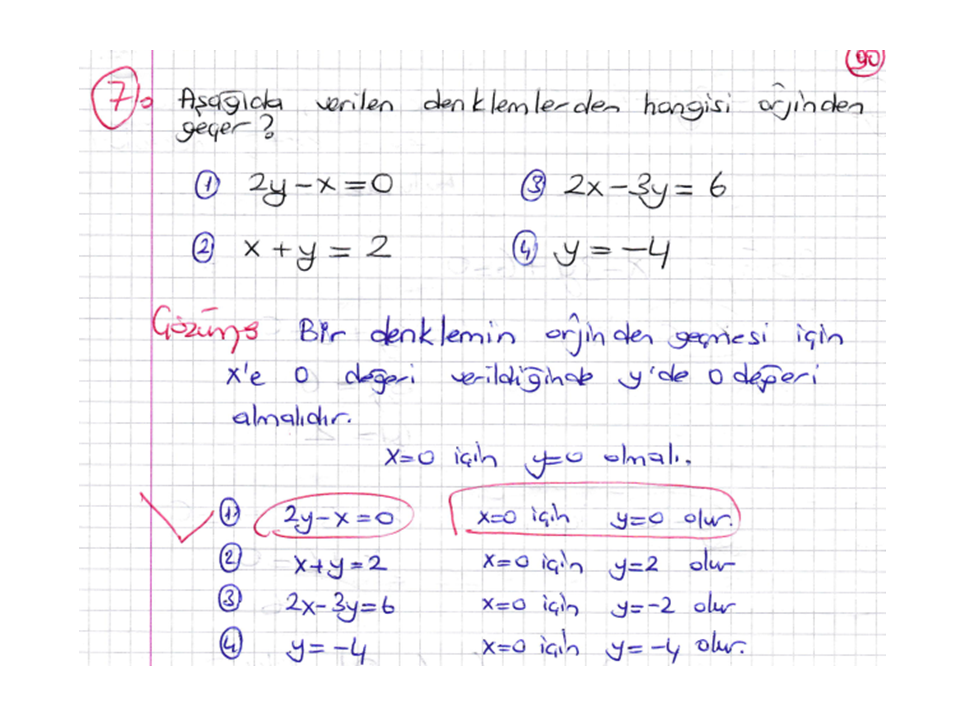 90
7. Aşağıda verilen denklemlerden hangisi orjinden
geçer?
① 2y-x=0 ③ 2x-3y=6
② x+y=2 ④ y=-4
Çözüm: Bir denklemin orjinden geçmesi için
x'e 0 değeri verildiğinde y'de 0 değeri
almalıdır.
x=0 için y=0 olmalı.
① 2y-x=0 x=0 için y=0 olur.
② x+y=2 x=0 için y=2 olur
③ 2x-3y=6 x=0 için y=-2 olur
④ y=-4 x=0 için y=-4 olur.